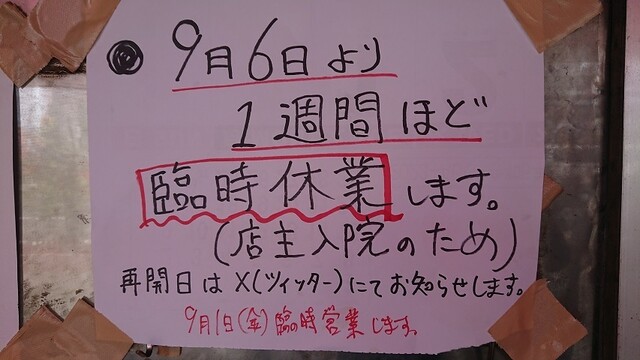 ◉ 9月6日より
1週間ほど
臨時休業します。
(店主入院のため)
再開日はX(ツイッター)にてお知らせします。
9月1日(金)臨時営業します。